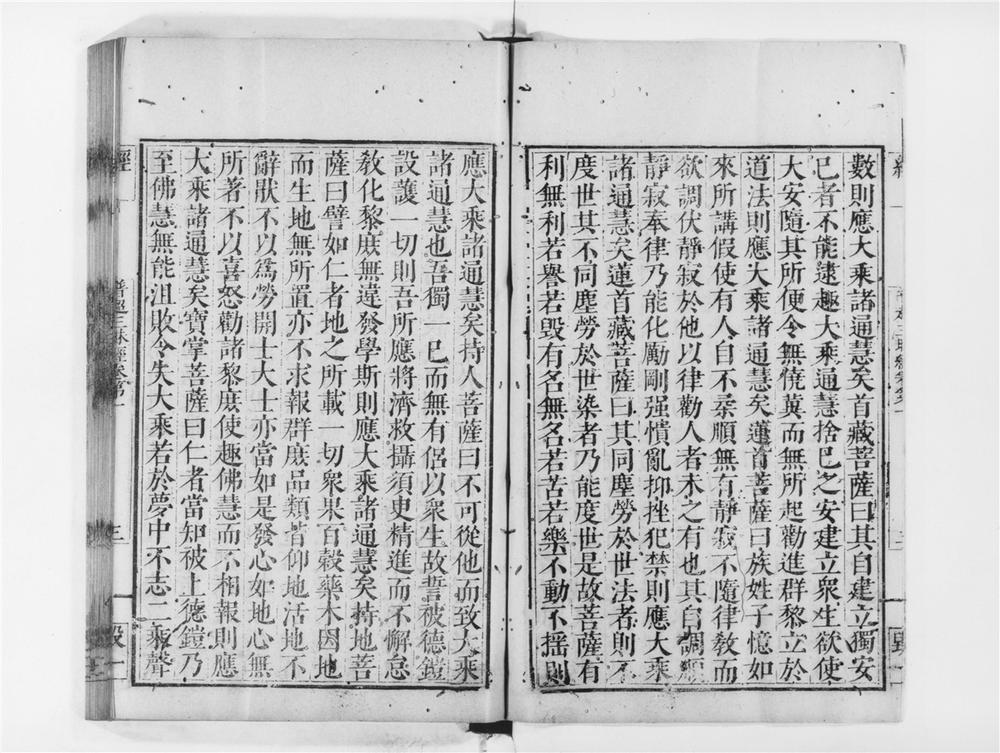 數則應大乘諸通慧矣首藏菩薩曰其自建立獨安
已者不能逮趣大乘通慧捨已之安建立衆生欲使
大安隨其所便令無憢冀而無所起勸進群黎立於
道法則應大乘諸通慧矣蓮首菩薩曰族姓子憶如
來所講假使有人自不柔順無有靜寂不隨律教而
欲調伏靜寂於他以律勸人者未之有也其自調順
靜寂奉律乃能化勵剛强憒亂抑挫犯禁則應大乘
諸通慧矣蓮首藏菩薩曰其同塵勞於世法者則不
度世其不同塵勞於世染者乃能度世是故菩薩有
利無利若譽若毀有名無名若苦若樂不動不摇則
應大乘諸通慧矣持人菩薩曰不可從他而致大乘
諸通慧也吾獨一已而無有侶以衆生故誓被德鎧
設護一切則吾所應將濟救攝須更精進而不懈怠
教化黎庶無違發學斯則應大乘諸通慧矣持地菩
薩曰譬如仁者地之所載一切衆果百穀藥木因地
而生地無所置亦不求報群庶品類皆仰地活地不
辭猒不以爲勞開士大士亦當如是發心如地心無
所著不以喜怒勸諸黎庶使趣佛慧而不相報則應
大乘諸通慧矣寶掌菩薩曰仁者當知被上德鎧乃
至佛慧無能沮敗令失大乘若於夢中不志二乘聲
經
普超三昧經卷第一
三
毀一